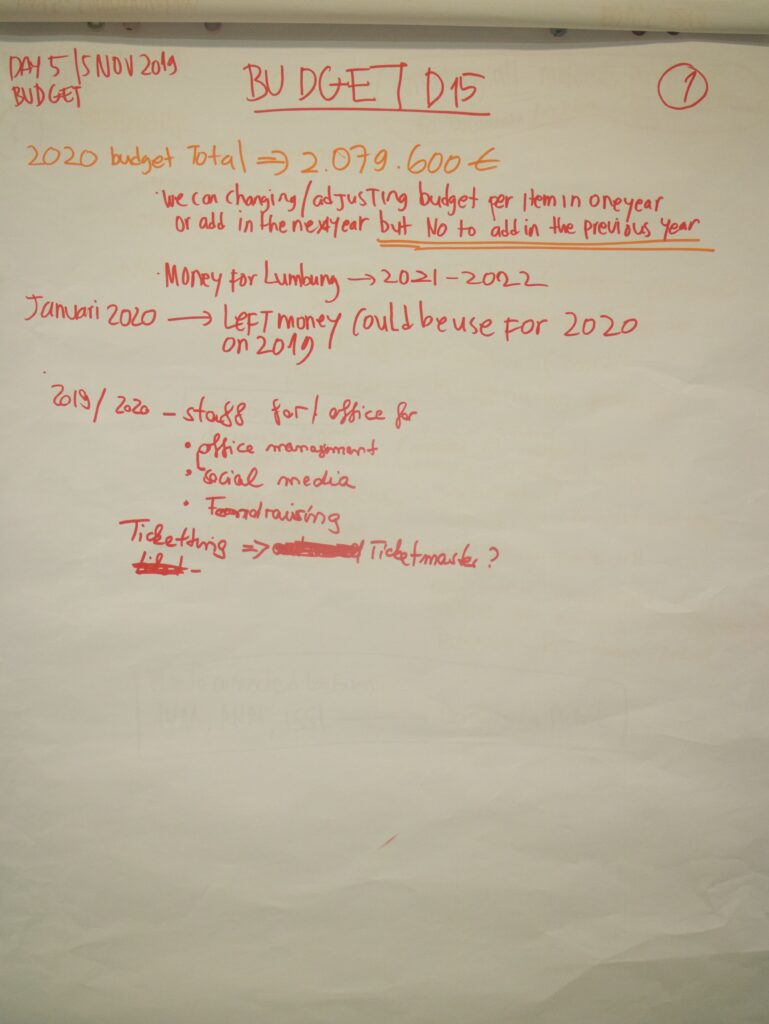 DAY 5 / 5 NOV 2019
BUDGET
BUDGET / D15
1
2020 budget Total ⇒ 2.079.600 €
· We can changing / adjusting budget per item in one year
or add in the next year but No to add in the previous year
· Money for Lumbung → 2021 - 2022
Januari 2020 → LEFT money could be use for 2020
on 2019
2019 / 2020 - staff for / office for
• office management
• social media
• Foundraising
Ticketting ⇒ Ticketmaster?